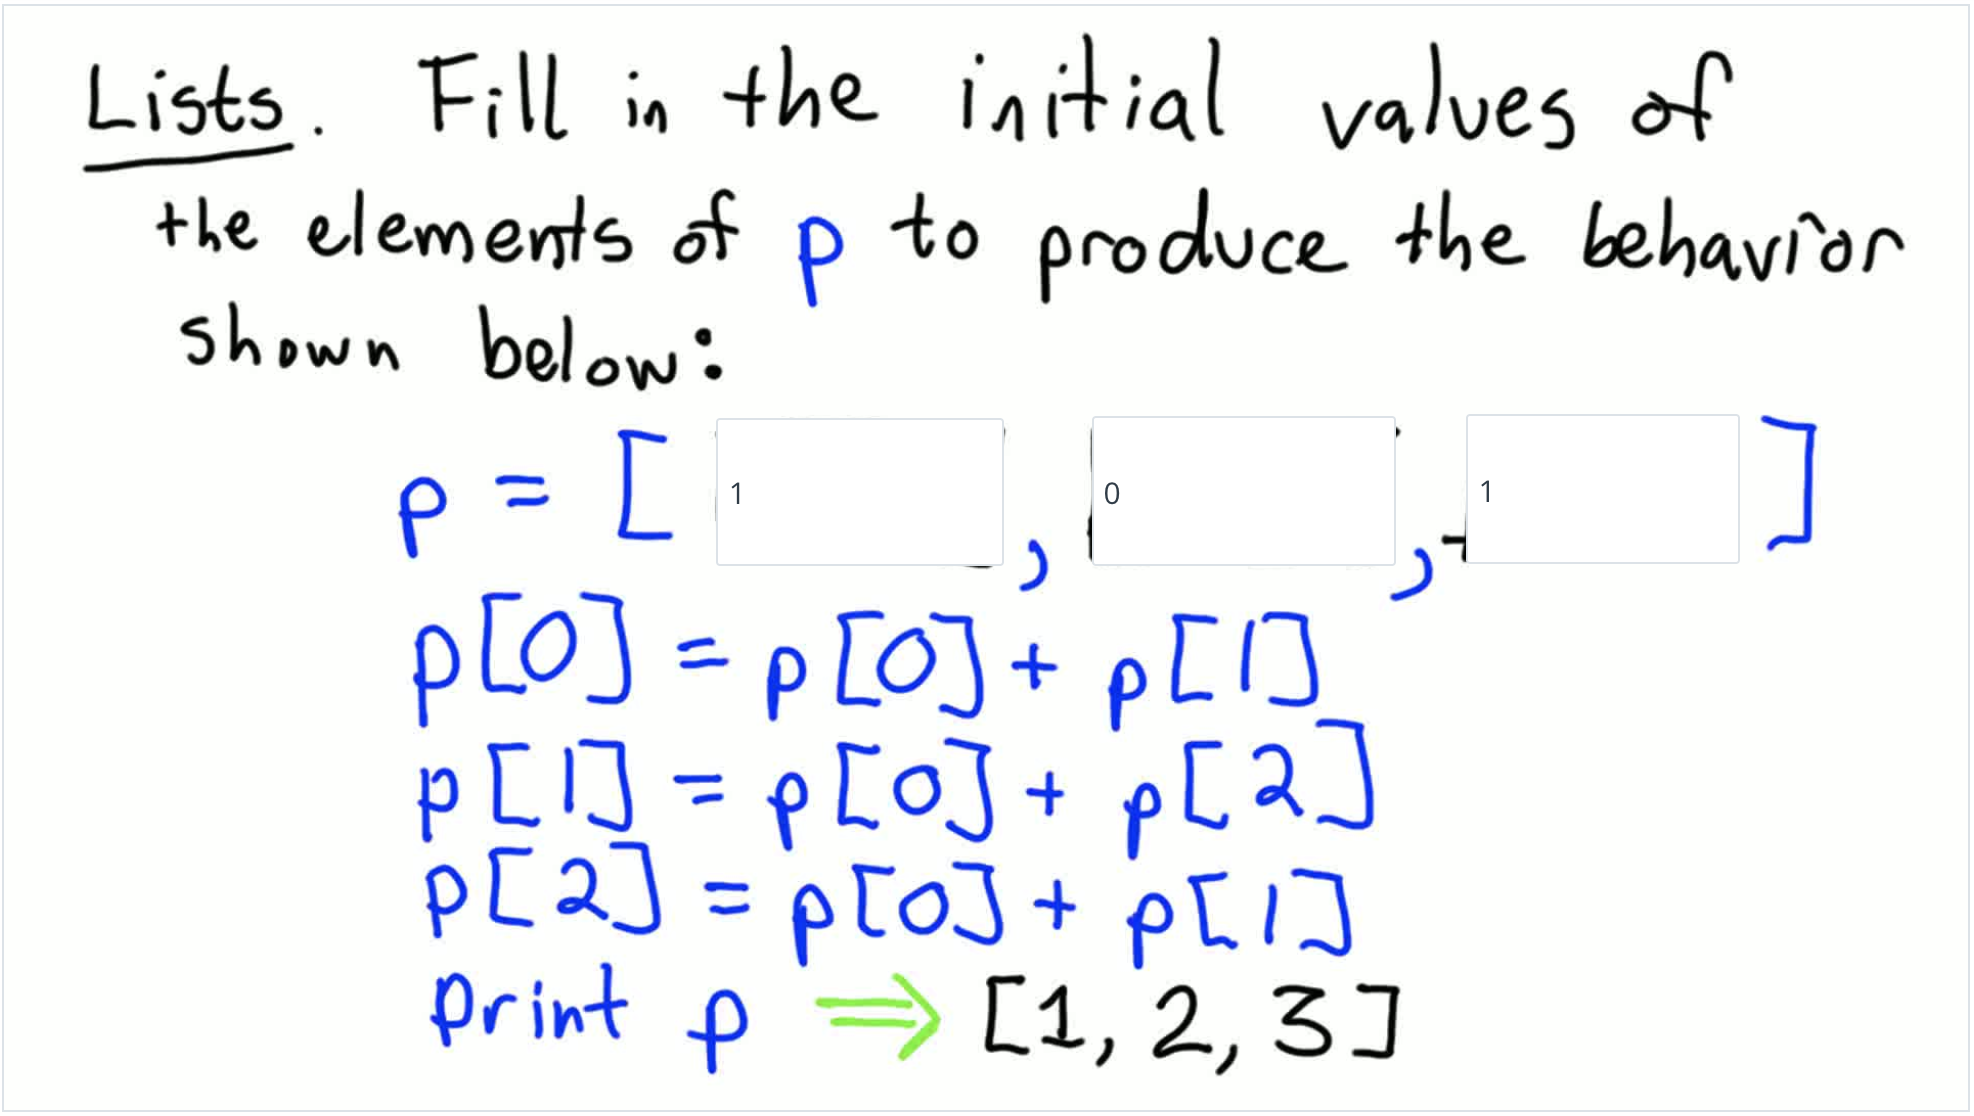 Lists. Fill in the initial values of
the elements of p to produce the behavior
shown below:
p = [ 1 , 0 , 1 ]
p[0] = p[0] + p[1]
p[1] = p[0] + p[2]
p[2] = p[0] + p[1]
print p ⇒ [1, 2, 3]